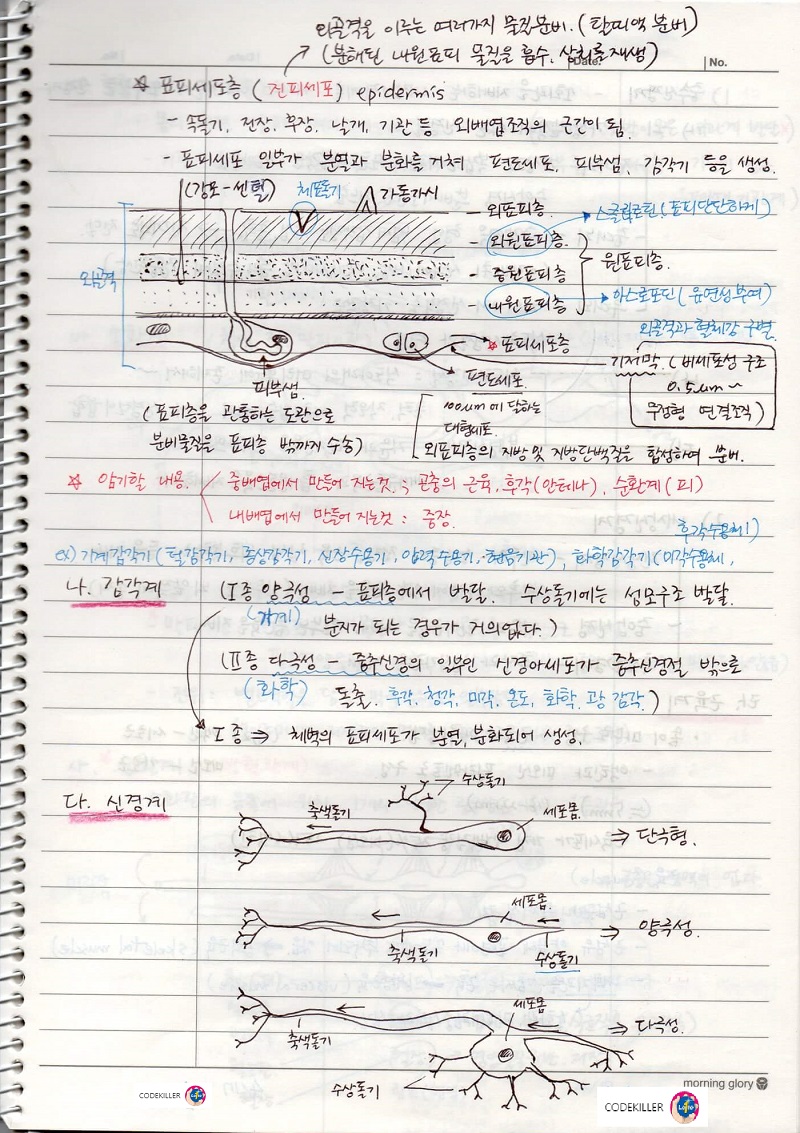 외골격을 이루는 여러가지 물질분비. (탈피액 분비)
(분해된 내원표피 물질을 흡수. 상처를 재생)
Date.
No.
☆ 표피세포층 (진피세포) epidermis
- 속돌기, 전장, 후장, 날개, 기관 등 외배엽조직의 근간이 됨.
- 표피세포 일부가 분열과 분화를 거쳐 편도세포, 피부샘, 감각기 등을 생성.
(강모-센털)
체표돌기
가동가시
외골격
- 외표피층
- 외원표피층.
- 중원표피층
내원표피층
원표피층.
스클러로틴(표피단단하게)
아스로포딘(유연성부여)
외골격과 혈체강 구별.
표피세포층
편도세포.
100um에 달하는
대형세포.
외표피층의 지방 및 지방단백질을 합성하여 분비.
기저막. (비세포성 구조
0.5um ~
무정형 연결조직)
피부샘.
(표피층을 관통하는 도관으로
분비물질을 표피층 밖까지 수송)
☆ 암기할 내용.
중배엽에서 만들어 지는것. : 곤충의 근육, 후각(안테나), 순환계 (피)
내배엽에서 만들어 지는것 : 중장.
후각수용체)
ex) 기계감각기(털감각기, 종상감각기, 신장수용기, 압력수용기, 현음기관), 화학감각기(미각수용체,
나. 감각계
(I종 양극성 - 표피층에서 발달. 수상돌기에는 섬모구조 발달.
(기계)
분지가 되는 경우가 거의없다.)
(II종 다극성 - 중추신경의 일부인 신경아세포가 중추신경절 밖으로
(화학)
돌출. 후각, 청각, 미각, 온도, 화학, 광 감각.)
I 종 ⇒ 체벽의 표피세포가 분열, 분화되어 생성.
다. 신경계
수상돌기
축색돌기
세포몸.
⇒ 단극형.
세포몸.
축색돌기
수상돌기
⇒ 양극성.
세포몸
축색돌기
수상돌기
⇒ 다극성.
morning glory
CODEKILLER
CODEKILLER